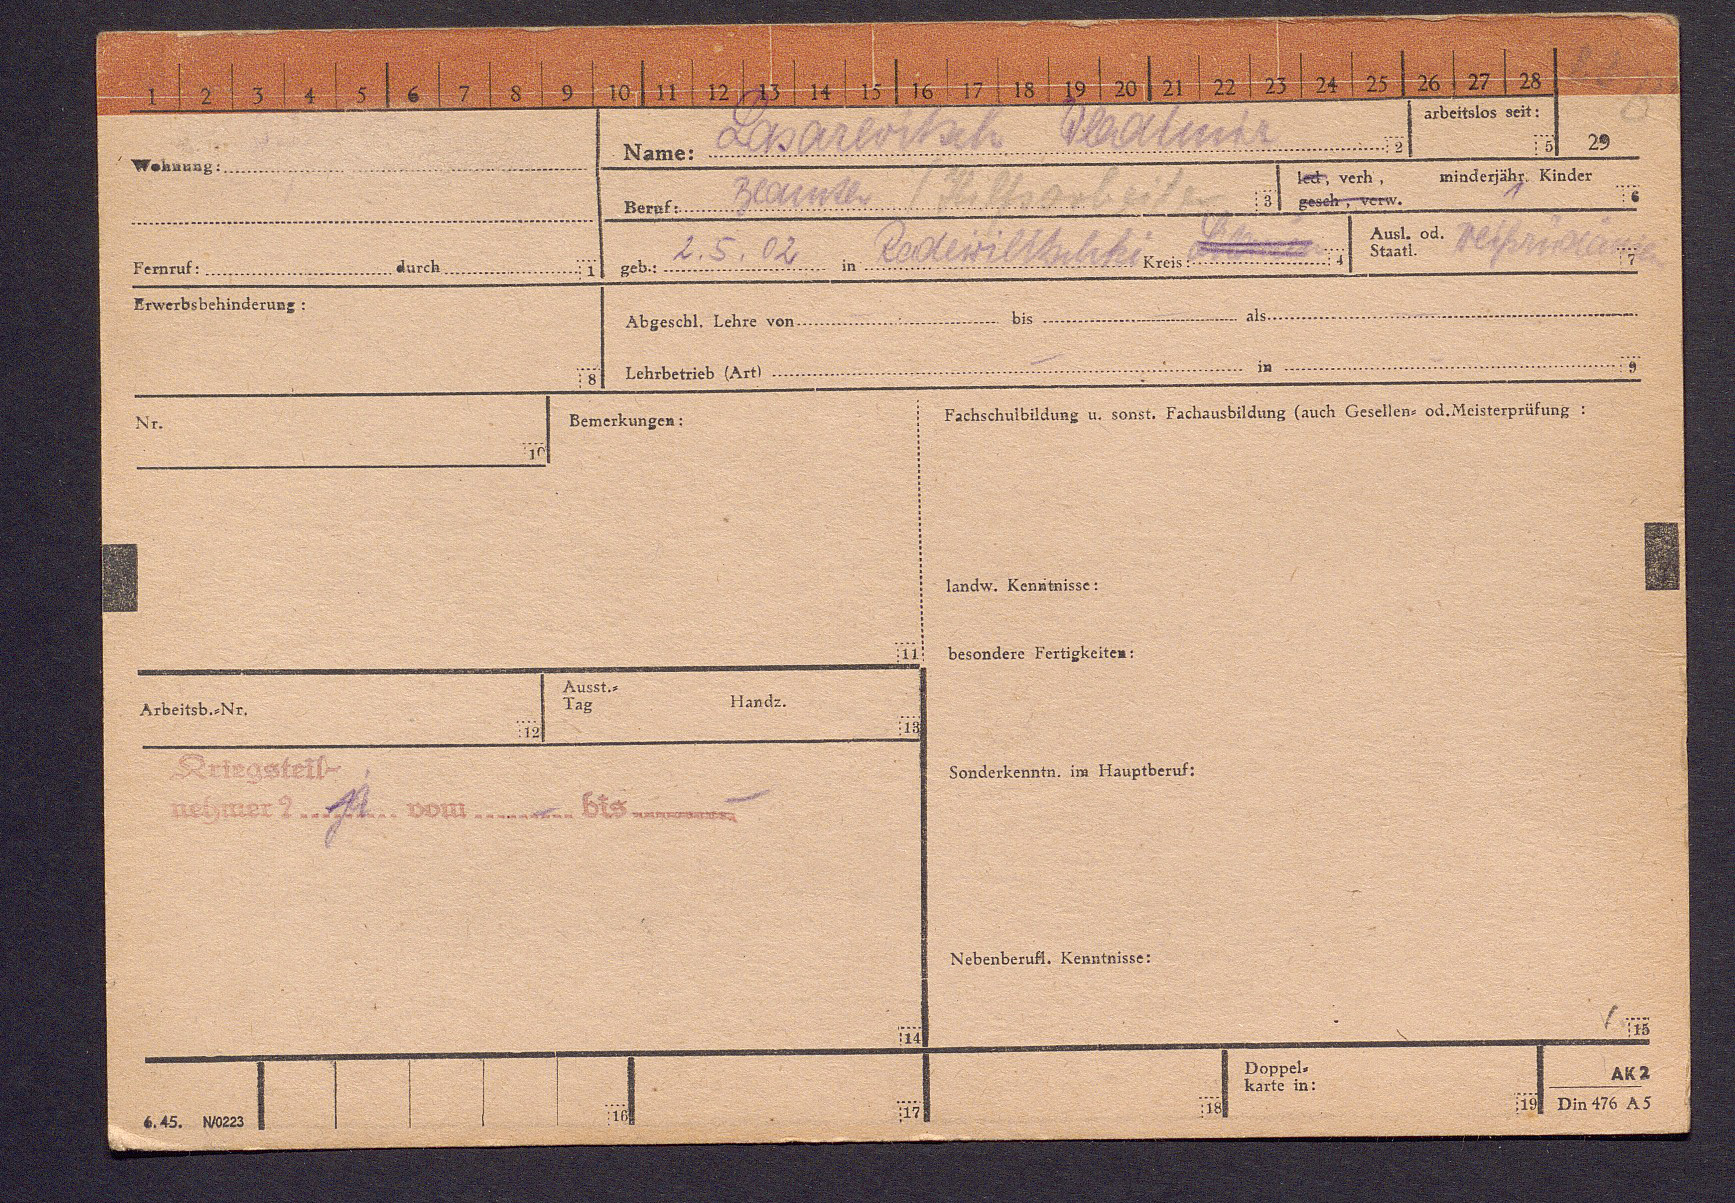 1 2 3 4 5 6 7 8 9 10 11 12 13 14 15 16 17 18 19 20 21 22 23 24 25 26 27 28
arbeitslos seit:
5 29
Name: Lasarewitsch Wladimir 2
Wohnung:
Beruf: Beamter / Hilfsarbeiter 3
led, verh, minderjähr. Kinder
gesch, verw. 1 6
Fernruf: durch 1
geb.: 2.5.02 in Radewilitschki Kreis: 4
Ausl. od.
Staatl. 7
Erwerbsbehinderung:
8
Abgeschl. Lehre von bis als
Lehrbetrieb (Art) in 9
Nr.
10
Bemerkungen:
11
Fachschulbildung u. sonst. Fachausbildung (auch Gesellen- od. Meisterprüfung :
landw. Kenntnisse:
besondere Fertigkeiten:
Arbeitsb.-Nr. 12
Ausst.-
Tag Handz. 13
Kriegsteil-
nehmer? ja vom - bis -
14
Sonderkenntn. im Hauptberuf:
Nebenberufl. Kenntnisse:
15
6.45. N/0223 16 17 18
Doppel-
karte in: 19
AK2
Din 476 A5